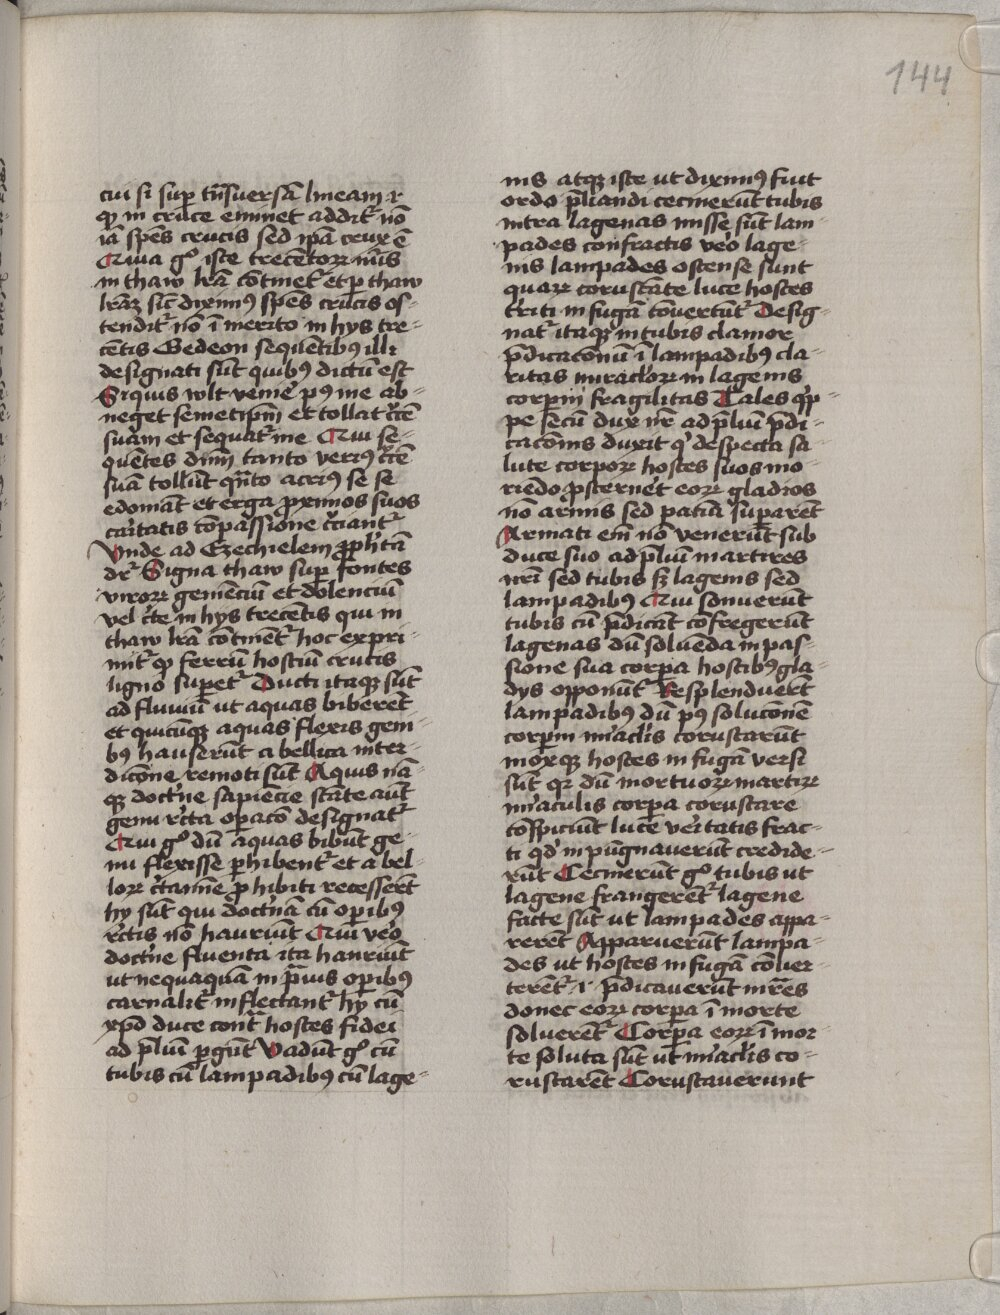 144
cui si sup̲ tn̄suersā lineam ꝛ
qꝫ in cruce eminet addit᷑ nō
iā sp̄es crucis sed ip̄a crux ē
Quia gͦ iste trecētoꝝ nūs
in thaw lr̄a cōtinet᷑ et p̲ thaw
lr̄aꝫ sic̄ diximꝰ sp̄es crucis os⸗
tendit᷑ nō īmerito in hys tre⸗
cētis Gedeon sequētibꝰ illi
designati sūt quibꝰ dictū est
Siquis wlt venīe pꝰ me ab⸗
neget semetip̄m et tollat cͣcē
suam et sequat᷑ me Qui se⸗
quētes dnm̄ tanto veriꝰ cͣcē
suā tollūt qn̄to acriꝰ se se
edomāt et erga ꝓximos suos
caritatis cōpassione cͣciant᷑
Vnde ad Ezechielem ꝓph̄tā
dr̄ Signa thaw sup̲ frontes
viroꝝ gemēciū et dolenciū
vel cͣte in hys trecētis qui in
thaw lr̄a cōtinet᷑ hoc expri⸗
mit᷑ qꝫ ferrū hostiū crucis
ligno sup̲et᷑ Ducti itaqꝫ sūt
ad fluuiū ut aquas biberēt
et quicūqꝫ aquas flexis geni⸗
bꝰ hauserūt a bellica inter⸗
dictōne remoti sūt Aquis nā⸗
qꝫ doctͥne sapiēcie stāte autē
genu rc̄ta op̲acō designat᷑
Qui gͦ dū aquas bibūt ge⸗
nu flexisse p̲hibent᷑ et a bel⸗
loꝝ cͣtamīe ꝓhibiti recesserēt
hy sūt qui doctͥnā cū op̲ibꝰ
rc̄tis nō hauriūt Qui vͦo
doctͥne fluenta ita hauriūt
ut nequaquā in pͣuis op̲ibꝰ
carnalit᷑ inflectant᷑ hy cū
xp̄o duce contͣ hostes fidei
ad p̄liū p̲gūt Vadūt gͦ cū
tubis cū lampadibꝰ cū lage⸗
nis atqꝫ iste ut diximꝰ fuit
ordo p̄liandi cecinerūt tubis
intra lagenas misse sūt lam
pades confractis vͦo lage⸗
nis lampades ostense sunt
quaꝝ coruscāte luce hostes
tͣriti in fugā cōuertūt᷑ Desig⸗
nat᷑ itaqꝫ in tubis clamor
p̄dicacōnū ī lampadibꝰ cla⸗
ritas miracloꝝ in lagenis
corp̲m fragilitas Tales q̲p⸗
pe secū dux nr̄ ad p̄liū p̄di⸗
cacōnis duxit qͥ despecta sa
lute corpoꝝ hostes suos mo⸗
riēdo ꝓsternēt eoꝝ gladios
nō armis sed patīa sup̲arēt
Armati em̄ nō venerūt sub
duce suo ad p̄liū martires
nr̄i sed tubis sꝫ lagenis sed
lampadibꝰ Qui sonuerūt
tubis cū p̄dicāt cōfregerūt
lagenas dū soluēda in pas⸗
sione sua corp̲a hostibꝰ gla⸗
dys opponūt᷑ Resplenduerūt
lampadibꝰ dū pꝰ solucōnē
corp̲m mͥaclīs coruscarūt
moxqꝫ hostes in fugā versi
sūt qꝛ dū mortuoꝝ martiꝝ
mͥaculis corp̲a coruscare
cōspiciūt luce veritatis frac⸗
ti qd̓ inpūgnauerūt credide⸗
rūt Cecinerūt gͦ tubis ut
lagene frangerēt᷑ lagene
fracte sūt ut lampades appa⸗
rerēt Apparuerūt lampa⸗
des ut hostes in fugā cōuer⸗
terēt᷑ .i. p̄dicauerūt mr̄es
donec eoꝝ corp̲a ī morte
soluerēt᷑ Corp̲a eoꝝ ī mor⸗
te soluta sūt ut mͥaclīs co⸗
ruscarēt Coruscauerunt